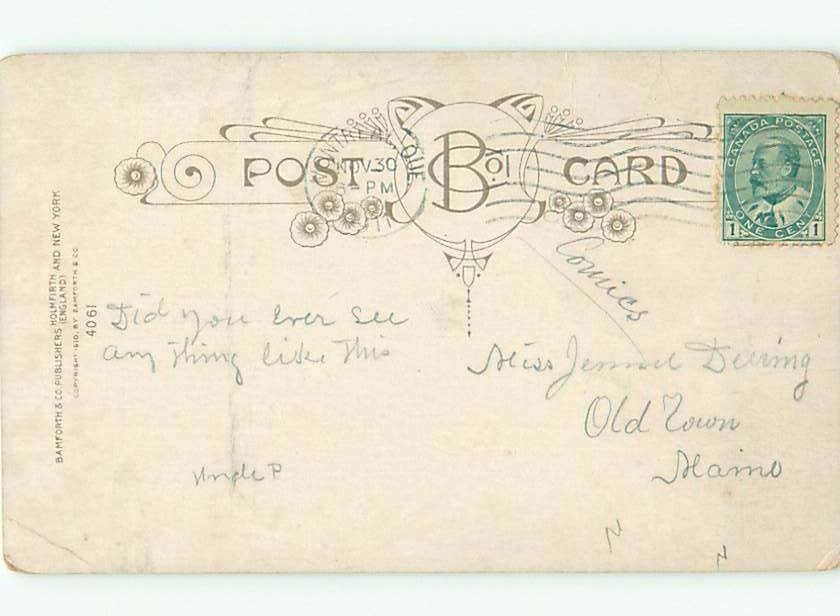 POST Bco CARD
MONTREAL QUE
NOV 30
PM
11
CANADA POSTAGE
ONE CENT
1 1
Comics
BAMFORTH & CO PUBLISHERS HOLMFIRTH AND NEW YORK
(ENGLAND)
COPYRIGHT 1910, BY BAMFORTH & CO.
4061
Did you ever see
any thing like this
Uncle P
Miss Jennie Deering
Old Town
Maine